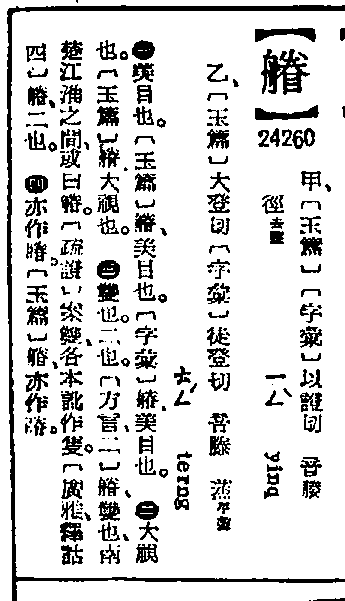 【䁬】24260
甲、〔玉篇〕〔字彙〕以證切 音媵
徑去聲 ㄧㄥˋ yinq
乙、〔玉篇〕大登切〔字彙〕徒登切 音滕 蒸平聲
ㄊㄥˊ terng
㊀美目也。〔玉篇〕䁬、美目也。〔字彙〕䁬、美目也。㊁大視
也。〔玉篇〕䁬、大視也。㊂雙也。二也。〔方言二〕䁬、雙也、南
楚江淮之間、或曰䁬。〔疏證〕案、雙、各本訛作隻。〔廣雅釋詁
四〕䁬、二也。㊃亦作。〔玉篇〕䁬、亦作。